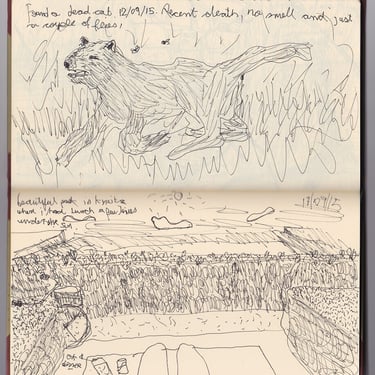 Found a dead cat, 12/09/15. Recent death, no smell and just
a couple of flies.
beautiful park in
where i had lunch a few times
under the sun